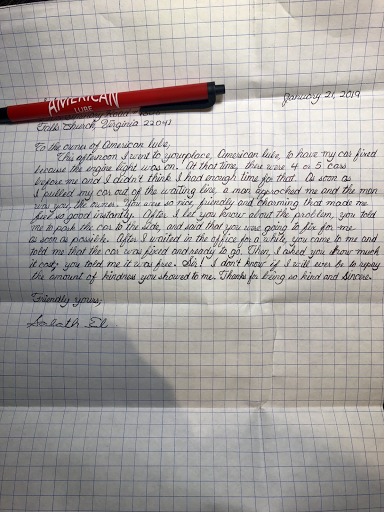 AMERICAN
LUBE
January 21, 2019
Falls Church, Virginia 22043
To the owner of American lube,
This afternoon I went to your place, American lube, to have my car fixed
because the engine light was on. At that time, there were 4 or 5 cars
before me and I didn't think I had enough time for that. As soon as
I pulled my car out of the waiting line, a man approched me and the man
was you, the owner. You were so nice, friendly and charming that made me
feel so good instantly. After I let you know about the problem, you told
me to park the car to the side, and said that you were going to fix for me
as soon as possible. After I waited in the office for a while, you came to me and
told me that the car was fixed and ready to go. Then, I asked you show much
it cost, you told me it was free. Sir! I don't know if I will ever be to repay
the amount of kindness you showed to me. Thanks for being so kind and sincere.
Friendly yours,